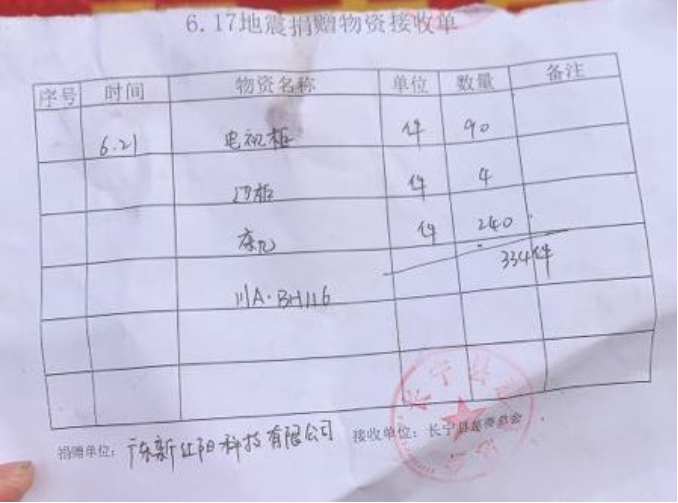 6.17地震捐赠物资接收单
序号 时间 物资名称 单位 数量 备注
6.21 电视柜 件 90
件 4
件 240
334件
川A·BH116
捐赠单位：广东新红阳科技有限公司 接收单位：长宁县慈善总会
长宁县慈善总会